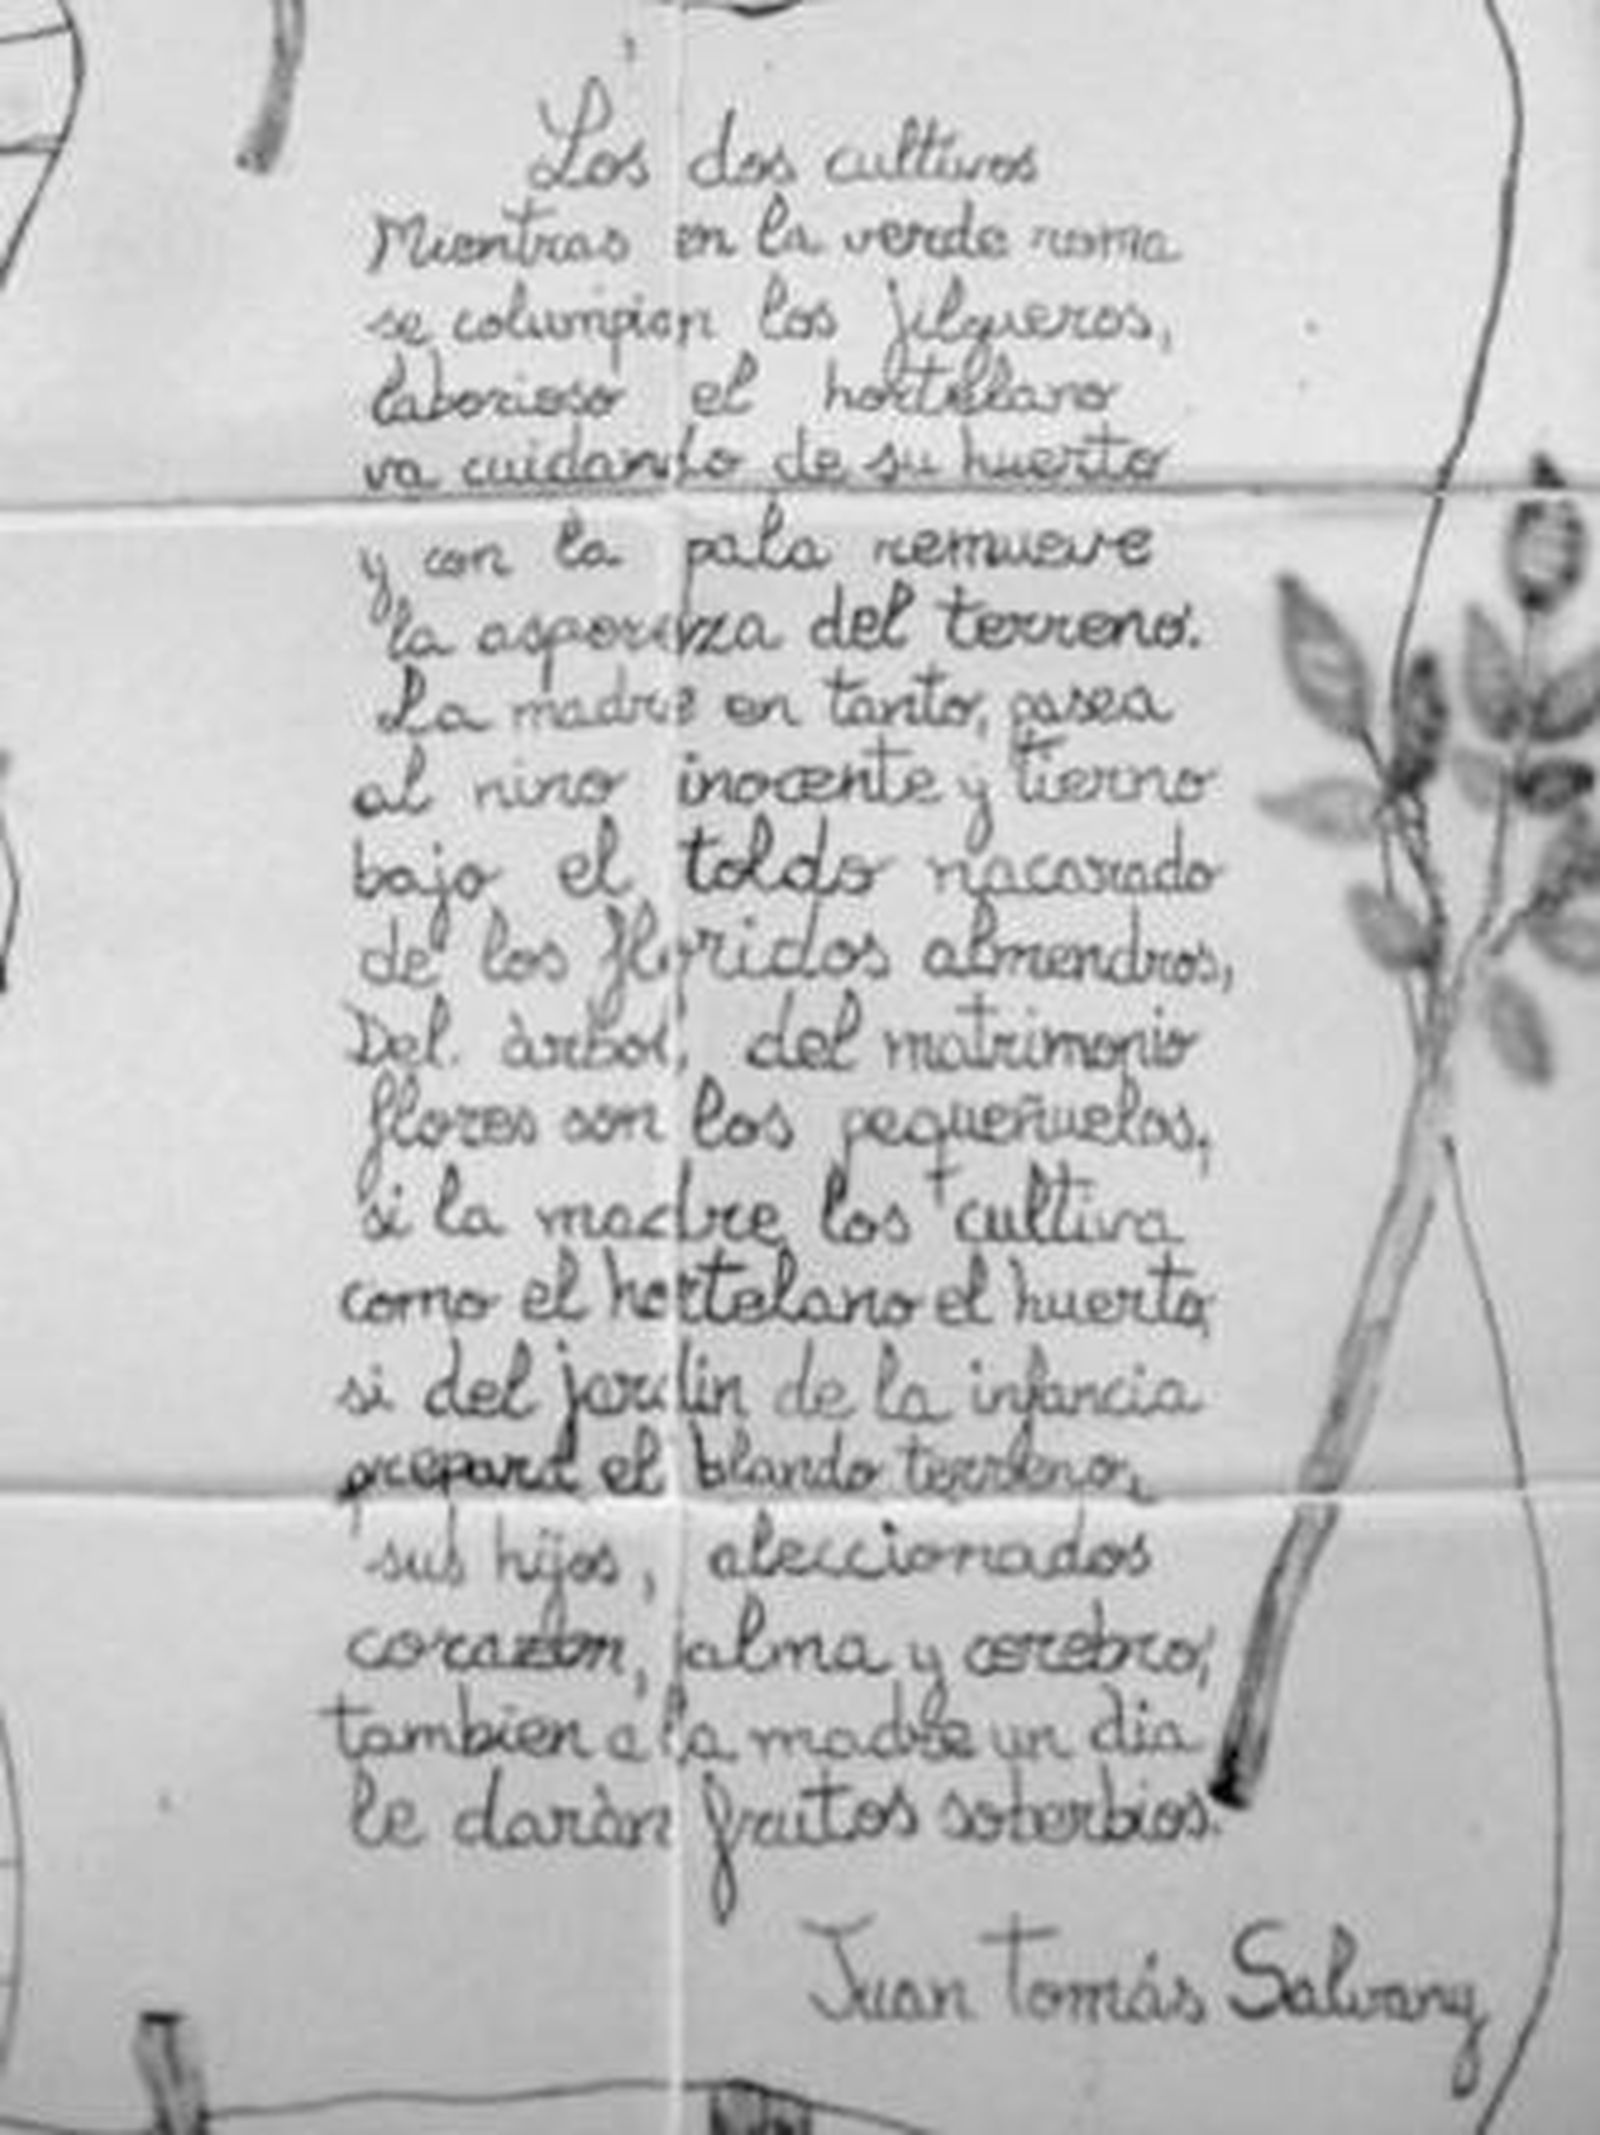 Los dos cultivos
Mientras en la verde rama
se columpian los jilgueros,
laborioso el hortelano
va cuidando de su huerto
y con la pala remueve
la aspereza del terreno.
La madre en tanto, pasea
al nino inocente y tierno
bajo el toldo nacarado
de los floridos almendros,
Del àrbol, del matrimonio
flores son los pequeñuelos,
si la madre los cultiva
como el hortelano el huerto,
si del jardin de la infancia
prepara el blando terreno,
sus hijos, aleccionados
corazon, alma y cerebro,
tambien a la madre un dia
le daràn frutos soberbios.
Juan Tomás Salvany